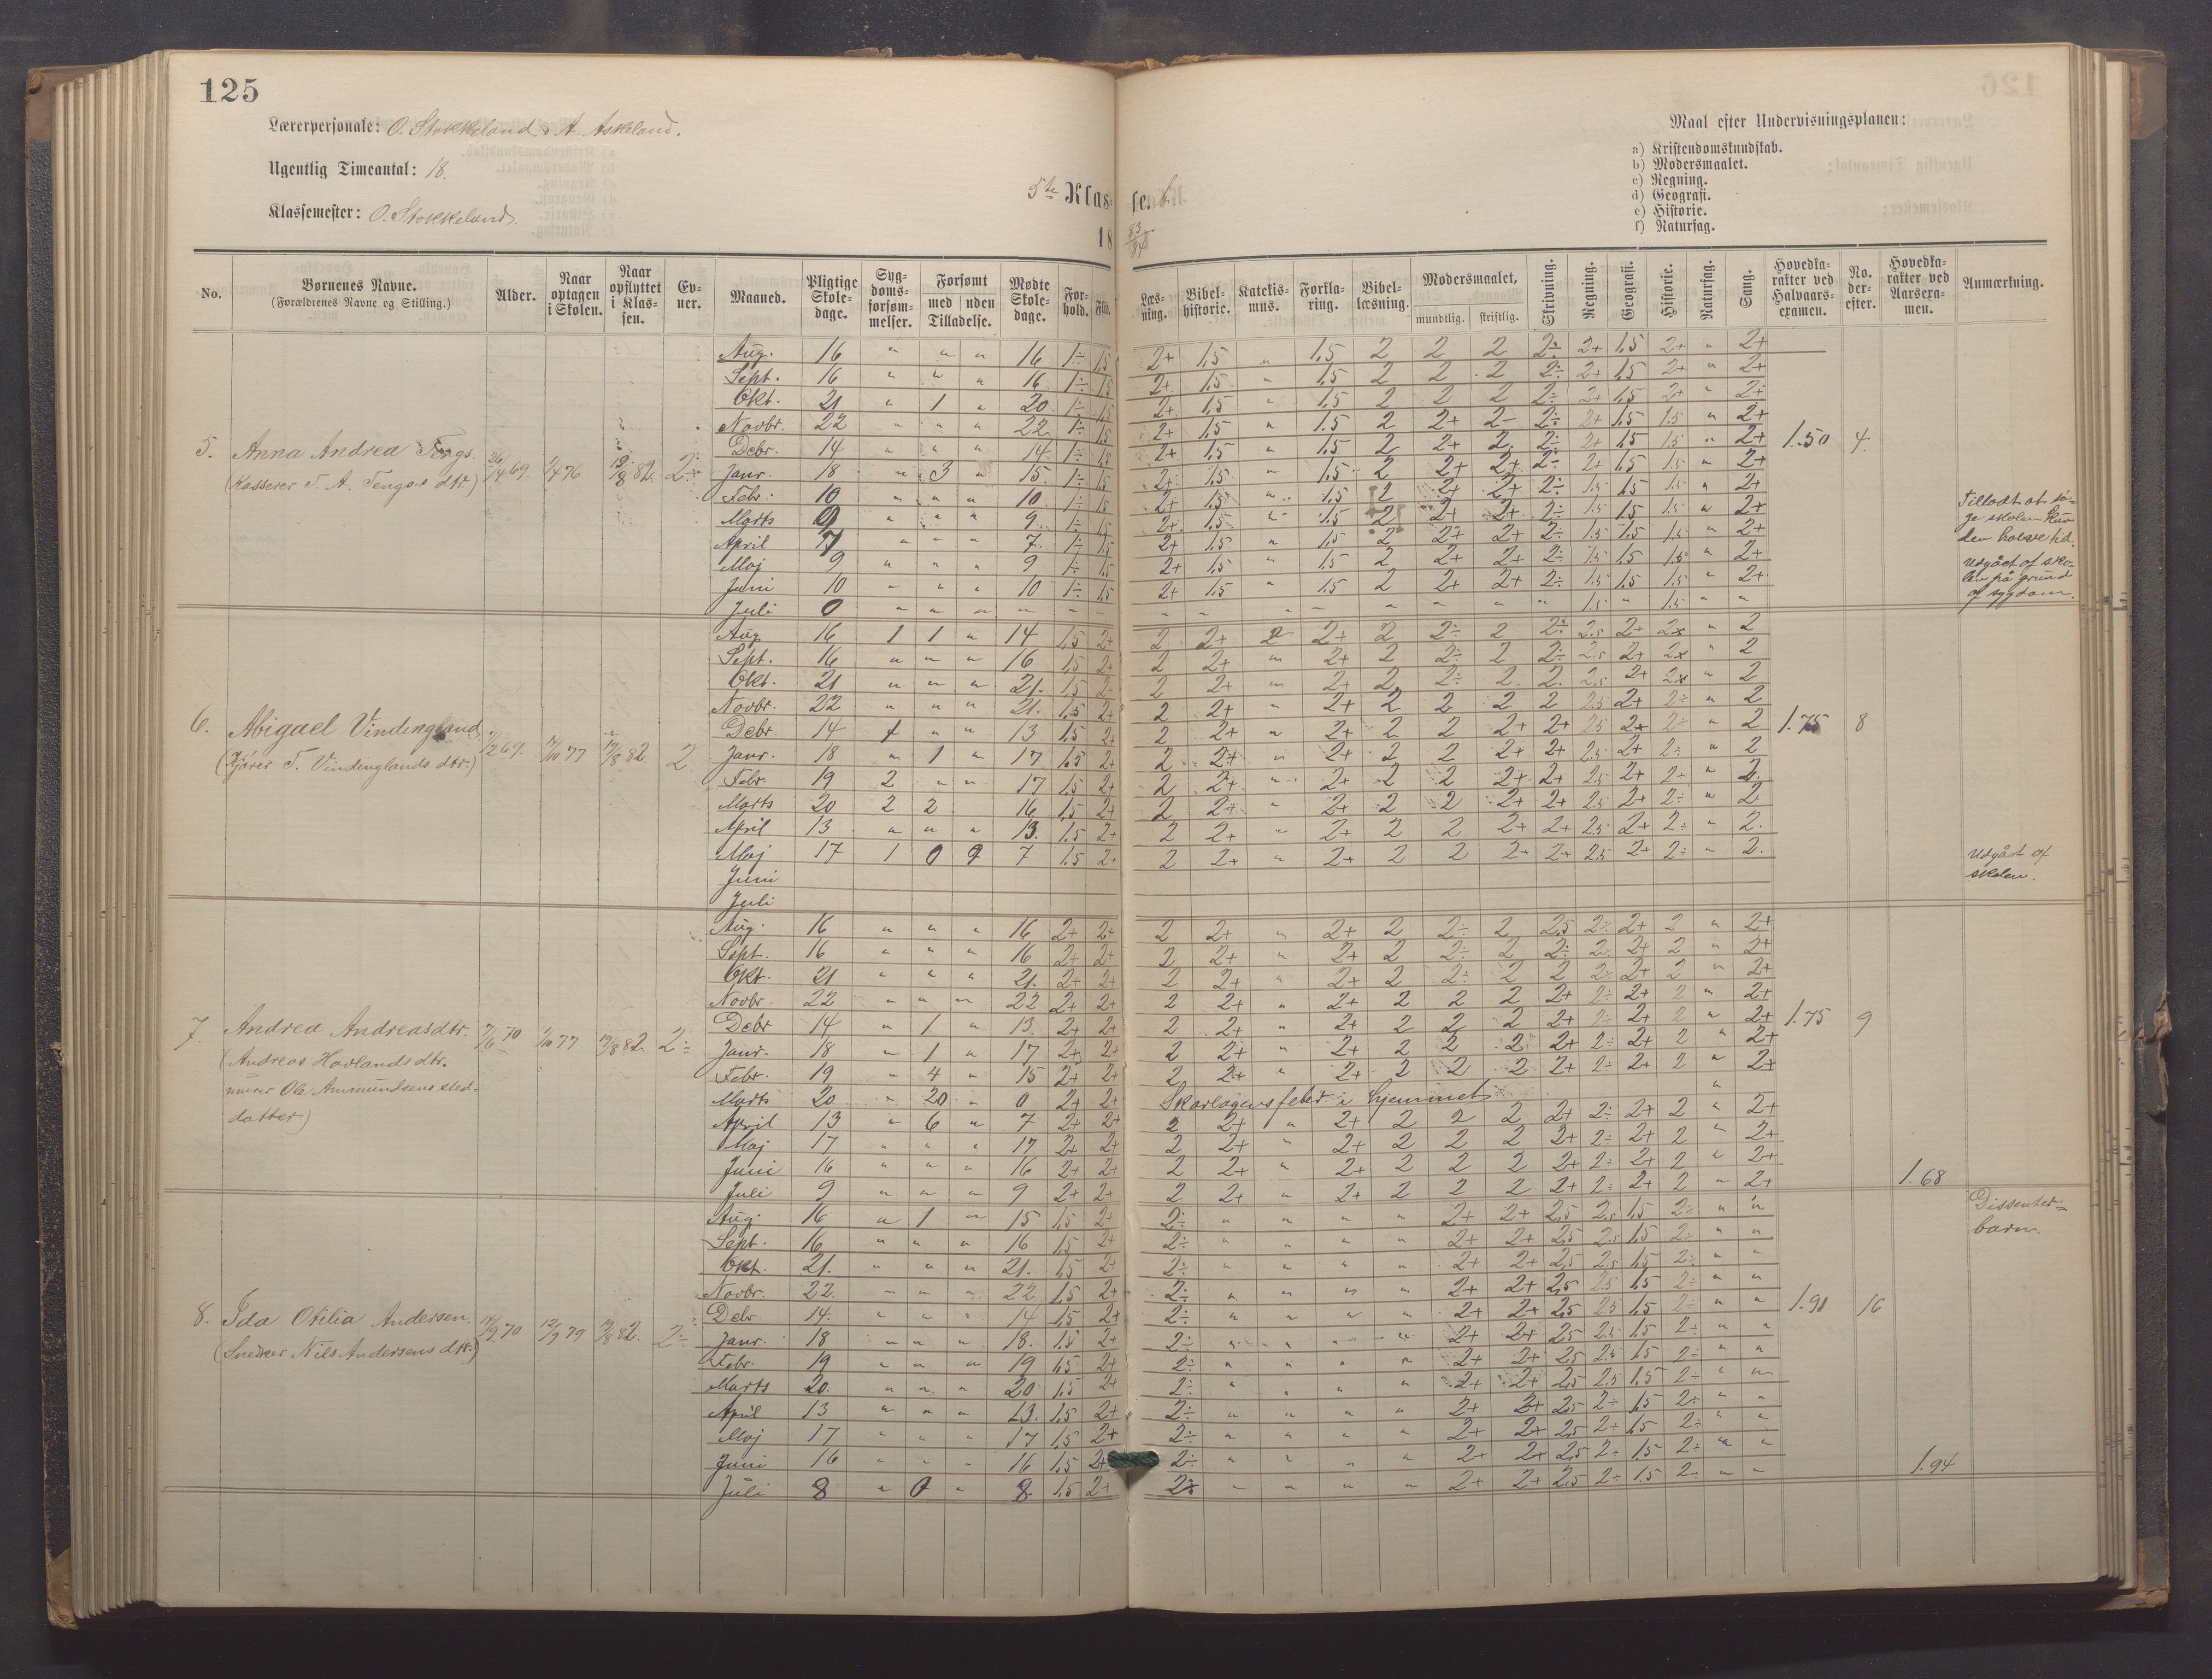 125
Lærerpersonale: O. Stokkeland, A. Askeland.
Ugentlig Timeantal: 18.
Klassemester: O. Stokkeland.
5te Klas-
18
No.
Børnenes Navne.
(Forældrenes Navne og Stilling.)
Alder.
Naar optagen i Skolen.
Naar opflyttet i Klassen.
Evner.
Maaned.
Pligtige Skoledage.
Sygdomsforsømmelser.
Forsømt
med | uden
Tilladelse.
Mødte Skoledage.
Forhold.
Flid.
5. Anna Andrea Tengs.
(Kasserer T. A. Tengs's dtr.)
26/4 69 1/4 76 19/8 82. 2+
Aug. 16 " " " 16 1÷ 1,5
Sept. 16 " " " 16 1÷ 1,5
Okt. 21 " 1 " 20 1÷ 1,5
Novbr. 22 " " " 22 1÷ 1,5
Debr. 14 " " " 14 1÷ 1,5
Janr. 18 " 3 " 15 1÷ 1,5
Febr. 10 " " " 10 1÷ 1,5
Marts 9 " " " 9 1÷ 1,5
April 7 " " " 7 1÷ 1,5
Maj 9 " " " 9 1÷ 1,5
Juni 10 " " " 10 1÷ 1,5
Juli 0 " " " " " "
6. Abigael Vindingland
(Kjører T. Vindinglands dtr.)
7/2 69. 17/10 77 19/8 82. 2
Aug 16 1 1 " 14 1,5 2+
Sept. 16 " " " 16 1,5 2+
Okt. 21 " " " 21. 1,5 2+
Novbr. 22 " " " 21. 1,5 2+
Debr. 14 1 " " 13 1,5 2+
Janr. 18 " 1 " 17 1,5 2+
Febr. 19 2 " " 17 1,5 2+
Marts 20 2 2 16 1,5 2+
April 13 " " " 13. 1,5 2+
Maj 17 1 0 9 7 1,5 2+
Juni
Juli
7. Andrea Andreasdtr.
(Andreas Hovlands dtr.
murer Ole Ammundsens sted-
datter)
7/6 70 1/10 77 19/8 82. 2÷
Aug. 16 " " " 16 2+ 2+
Sept. 16 " " " 16 2+ 2+
Okt. 21 " " " 21. 2+ 2+
Novbr. 22 " " " 22 2+ 2+
Debr 14 " 1 " 13. 2+ 2+
Janr. 18 " 1 " 17 2+ 2+
Febr. 19 " 4 " 15 2+ 2+
Marts 20 " 20 " 0 2+ 2+
April 13 " 6 " 7 2+ 2+
Maj 17 " " " 17 2+ 2+
Juni 16 " " " 16 2+ 2+
Juli 9 " " " 9 2+ 2+
8. Ida Otilia Andersen.
(Snedker Nils Andersens dtr.)
17/9 70 12/9 79 19/8 82. 2÷
Aug. 16 " 1 " 15 1,5 2+
Sept. 16 " " " 16 1,5 2+
Okt. 21. " " " 21. 1,5 2+
Novbr. 22. " " " 22 1,5 2+
Debr. 14. " " " 14 1,5 2+
Janr. 18 " " " 18. 1,5 2+
Febr. 19 " " " 19 1,5 2+
Marts 20. " " " 20 1,5 2+
April 13 " " " 13. 1,5 2+
Maj 17 " " " 17 1,5 2+
Juni 16 " " " 16 1,5 2+
Juli 8 " 0 " 8. 1,5 2+
se. b.
83/84
Maal efter Undervisningsplanen:
a) Kristendomskundskab.
b) Modersmaalet.
c) Regning.
d) Geografi.
e) Historie.
f) Naturfag.
Læsning.
Bibelhistorie.
Katekismus.
Forklaring.
Bibellæsning.
Modersmaalet.
mundtlig. | skriftlig.
Skrivning.
Regning.
Geografi.
Historie.
Naturfag.
Sang.
Hovedkarakter ved Halvaarsexamen.
No. derefter.
Hovedkarakter ved Aarsexamen.
Anmærkning.
2+ 1,5 " 1,5 2 2 2 2÷ 2+ 1,5 2+ " 2+
2+ 1,5 " 1,5 2 2 2 2÷ 2+ 1,5 2+ " 2+
2+ 1,5 " 1,5 2 2 2 2÷ 2+ 1,5 2+ " 2+
2+ 1,5 " 1.5 2 2+ 2 2÷ 2+ 1,5 1.5 " 2+
2+ 1,5 " 1,5 2 2+ 2 2÷ 2+ 1,5 1.5 " 2+
1.50 4.
2+ 1,5 " 1,5 2 2+ 2+ 2÷ 2+ 1,5 1.5 " 2+
2+ 1,5 " 1,5 2 2+ 2+ 2÷ 1.5 1,5 1.5 " 2+
2+ 1,5 " 1,5 2 2+ 2+ 2÷ 1.5 1,5 1.5 " 2+
2+ 1,5 " 1,5 2 2+ 2+ 2÷ 1.5 1,5 1.5 " 2+
2+ 1,5 " 1,5 2 2+ 2+ 2÷ 1.5 1,5 1.5 " 2+
2+ 1,5 " 1,5 2 2+ 2+ 2÷ 1.5 1,5 1.5 " 2+
" " " " " " " " 1.5 " 1.5 " "
Tilladt at sø-
ge skolen kun
den halve tid.
Udgået af sko-
len på grund
af sygdom.
2 2+ 2 2+ 2 2÷ 2 2÷ 2.5 2+ 2÷ " 2
2 2+ " 2+ 2 2÷ 2 2÷ 2.5 2+ 2÷ " 2
2 2+ " 2+ 2 2÷ 2. 2. 2.5 2+ 2÷ " 2
2 2+ " 2+ 2 2 2 2 2.5 2+ 2÷ " 2
2 2+ " 2+ 2 2 2+ 2+ 2.5 2+ 2÷ " 2
1.75 8
2 2+ " 2+ 2 2 2+ 2+ 2.5 2+ 2÷ " 2
2 2+ " 2+ 2 2 2+ 2+ 2.5 2+ 2÷ " 2.
2 2+ " 2+ 2 2 2+ 2+ 2.5 2+ 2÷ " 2
2 2+ " 2+ 2 2 2+ 2+ 2.5 2+ 2÷ " 2.
2 2+ " 2+ 2 2 2+ 2+ 2.5 2+ 2÷ " 2.
Udgået af
skolen.
2 2+ " 2+ 2 2÷ 2 2,5 2÷ 2+ 2 " 2+
2 2+ " 2+ 2 2÷ 2 2÷ 2÷ 2+ 2 " 2+
2 2+ " 2+ 2 2÷ 2 2 2÷ 2+ 2 " 2+
2 2+ " 2+ 2 2 2 2+ 2÷ 2+ 2 " 2+
2 2+ " 2+ 2 2 2 2+ 2÷ 2+ 2 " 2+
1.75 9
2 2+ " 2+ 2 2 2 2+ 2÷ 2+ 2 " 2+
2 2+ " 2+ 2 2 2 2+ 2÷ 2+ 2 " 2+
Skarlagensfeber i hjemmet "
2 2+ " 2+ 2 2 2 2+ 2÷ 2+ 2 " 2+
2 2+ " 2+ 2 2 2 2+ 2÷ 2+ 2 " 2+
2 2+ " 2+ 2 2 2 2+ 2÷ 2+ 2 " 2+
2 2+ " 2+ 2 2 2 2+ 2÷ 2+ 2 " 2+
1.68
Dissenter-
barn.
2÷ " " " " 2+ 2+ 2,5 2.5 1,5 2÷ " "
2÷ " " " " 2+ 2+ 2,5 2.5 1,5 2÷ " "
2÷ " " " " 2+ 2+ 2,5 2.5 1,5 2÷ " "
2÷ " " " " 2+ 2+ 2,5 2.5 1,5 2÷ " "
2÷ " " " " 2+ 2+ 2,5 2.5 1,5 2÷ " "
1.91 16
2÷ " " " " 2+ 2+ 2,5 2.5 1,5 2÷ " "
2÷ " " " " 2+ 2+ 2,5 2.5 1,5 2÷ " "
2÷ " " " " 2+ 2+ 2,5 2.5 1,5 2÷ " "
2÷ " " " " 2+ 2+ 2,5 2÷ 1,5 2÷ " "
2÷ " " " " 2+ 2+ 2,5 2÷ 1,5 2÷ " "
2÷ " " " " 2+ 2+ 2,5 2÷ 1,5 2÷ " "
2÷ " " " " 2+ 2+ 2,5 2÷ 1.5 2÷ " "
1.94